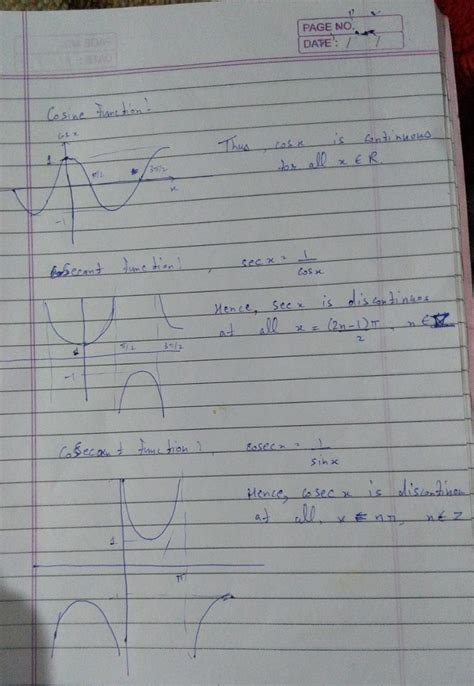 PAGE NO.
DATE: / /
Cosine Function:
cos x
1
π/2
3π/2
x
-1
Thus, cosx is continuous
for all x ∈ R
Secant function:, secx = 1/cosx
1
π/2
3π/2
-1
Hence, secx is discontinues
at all x = (2n-1)π/2, n∈Z
CoSecant function:, cosecx = 1/sinx
1
π
Hence, cosec x is discontinu
at all, x ∈ nπ, n∈Z